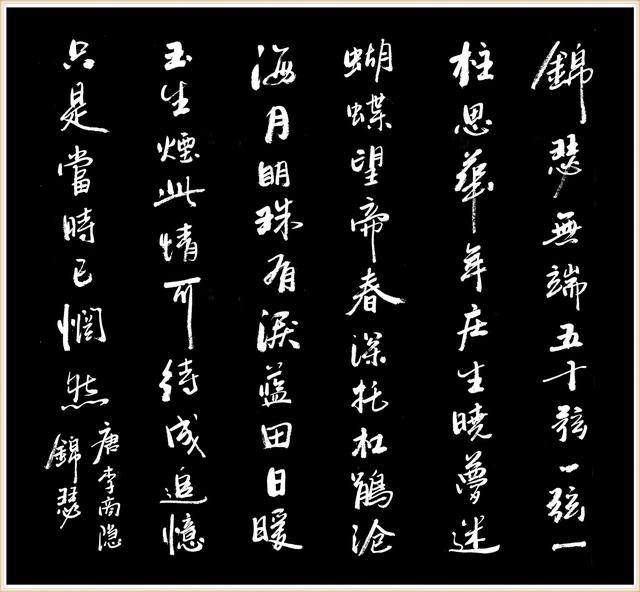 錦瑟無端五十弦一弦一
柱思華年庄生曉夢迷
蝴蝶望帝春深托杜鵑沧
海月明珠有淚蓝田日暖
玉生煙此情可待成追憶
只是當時已惘然
唐李商隐
錦瑟